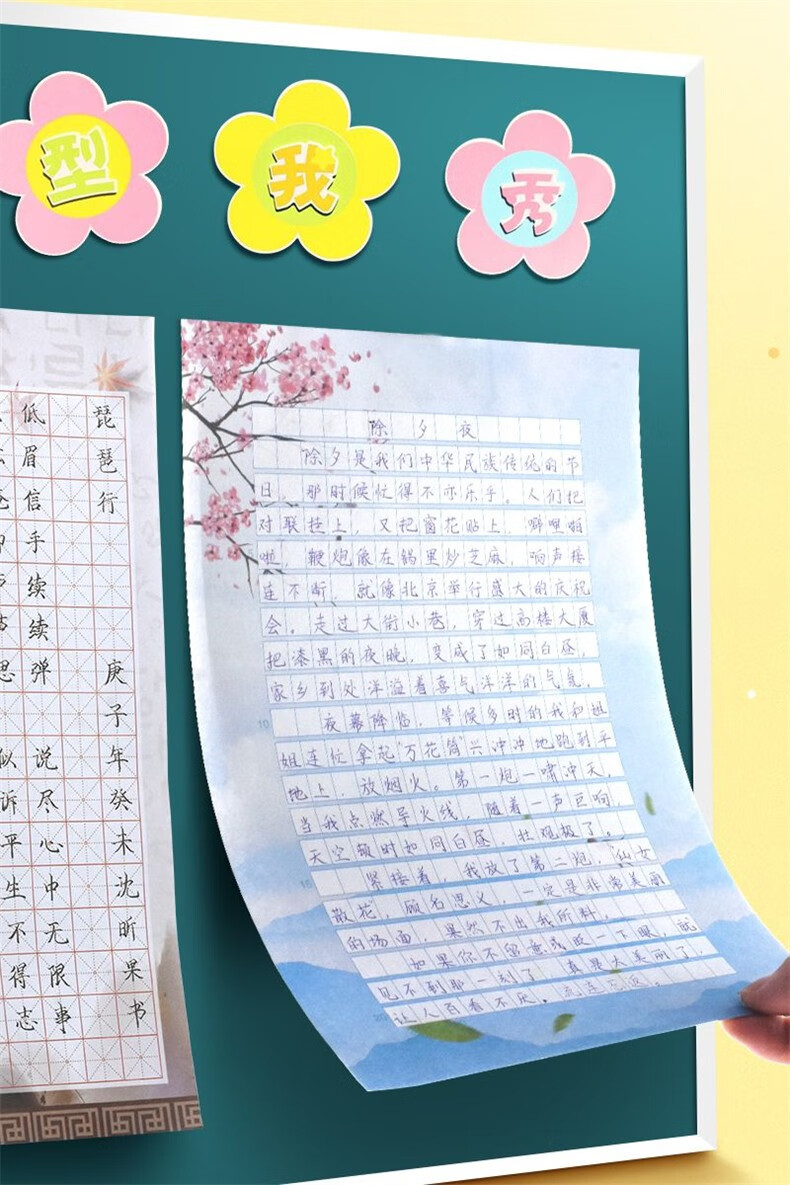 型 我 秀
低 琵
眉 琶
信 行
手
续
续
思弹 庚
子
似说 年
诉尽 癸
平心 未
生中 沈
不无 昕
得限 果
志事 书
除夕夜
除夕是我们中华民族传统的节
日，那时候忙得不亦乐乎。人们把
对联挂上，又把窗花贴上，噼哩啪
啦，鞭炮像在锅里炒芝麻，响声接
连不断，就像北京举行盛大的庆祝
会。走过大街小巷，穿过高楼大厦
把漆黑的夜晚，变成了如同白昼，
家乡到处洋溢着喜气洋洋的气氛。
10 夜幕降临，等候多时的我和姐
姐连忙拿起“万花筒”兴冲冲地跑到平
地上，放烟火。第一炮一啸冲天，
当我点燃导火线，随着一声巨响，
天空顿时如同白昼，壮观极了。
紧接着，我放了第二炮，“仙女
散花，顾名思义，一定是非常美丽
的场面，果然不出我所料，
如果你不留意或眨一下眼，就
见不到那一刻了，真是太美丽了，
让人百看不厌。流连忘返。